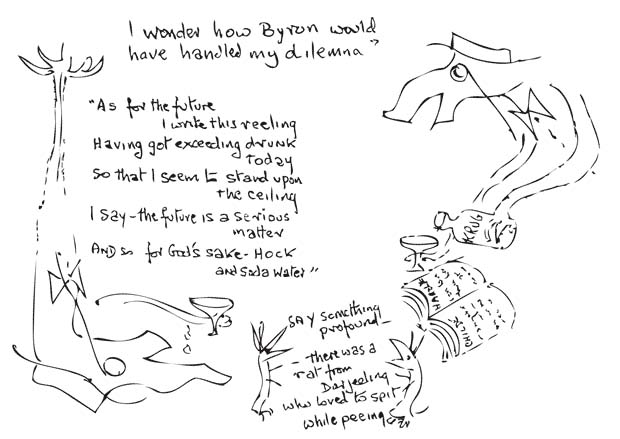 I wonder how Byron would
have handled my dilemna"
"As for the future
I write this reeling
Having got exceeding drunk
today
So that I seem to stand upon
the ceiling
I say - the future is a serious
matter
And so for God's sake - Hock
and soda water"
KRUG
CHILDE
HAROLD
SAY something
profound -
- there was a
rat from
Darjeeling
who loved to spit
while peeing